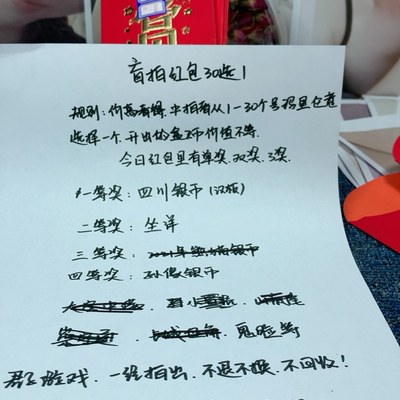 盲拍红包30选1
规则：价高者得，中拍者从1—30个号码里任意
选择一个，开出的盒币价值不等。
今日红包里有单奖，双奖，3奖。
一等奖：四川银币（汉版）
二等奖：坐洋
三等奖：
四等奖：孙像银币
鬼脸等
群友游戏，一经拍出，不退不换，不回收！